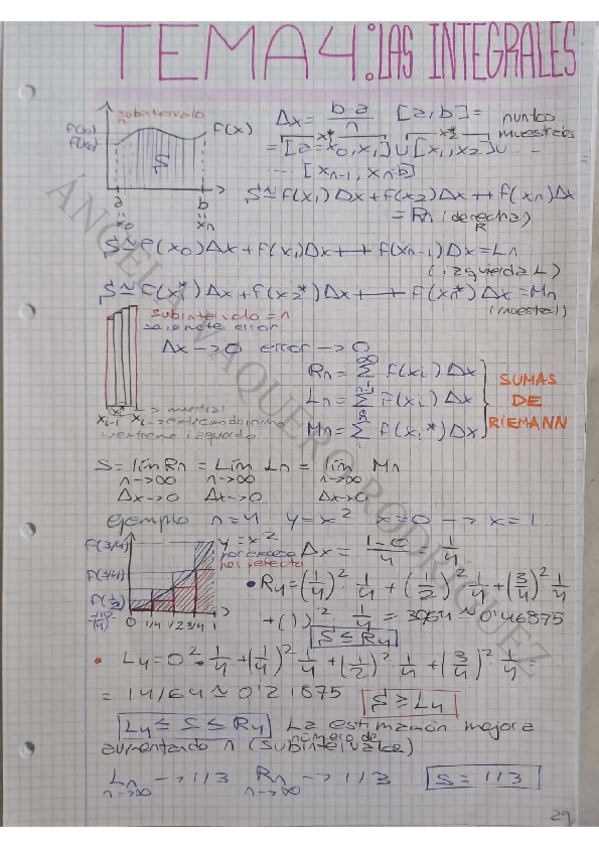 TEMA 4: LAS INTEGRALES
subintervalo
n
f(b)
f(a)
f(x)
S
a b
x0 xn
Δx = b-a / n [a,b] = puntos muestrales
x1* x2*
= [a=x0,x1]∪[x1,x2]∪ ...
... [xn-1, xn=b]
S≈f(x1)Δx+f(x2)Δx+ + f(xn)Δx
= Rn (derecha)
R
S≈f(x0)Δx+f(x1)Δx+ + f(xn-1)Δx=Ln
(izquierda L)
S≈f(x1*)Δx+f(x2*)Δx+ + f(xn*)Δx=Mn
(muestral)
subintervalo = n
Δx→0 error→0
Rn= Σ f(xi)Δx
Ln= Σ f(xi)Δx
Mn= Σ f(xi*)Δx
SUMAS
DE
RIEMANN
xi-1 x* xi
→ muestral
extremo izquierdo
S= lím Rn = Lím Ln = lím Mn
n→∞ n→∞ n→∞
Δx→0 Δx→0 Δx→0
ejemplo n=4 y=x² x=0 → x=1
y=x²
por exceso
por defecto
f(3/4)
0 1/4 1/2 3/4 1
Δx= 1-0 / 4 = 1/4
• R4=(1/4)²·1/4+(1/2)²·1/4+(3/4)²1/4
+(1)²·1/4 = 30/64≈0'46875
S≤R4
• L4=0²·1/4+(1/4)²·1/4+(1/2)²·1/4+(3/4)²·1/4=
= 14/64≈0'21875
S≥L4
L4≤S≤R4 La estimación mejora
aumentando n (número de subintervalos)
Ln→1/3 Rn→1/3 S=1/3
n→∞ n→∞
29
ÁNGELA VAQUERO RODRÍGUEZ